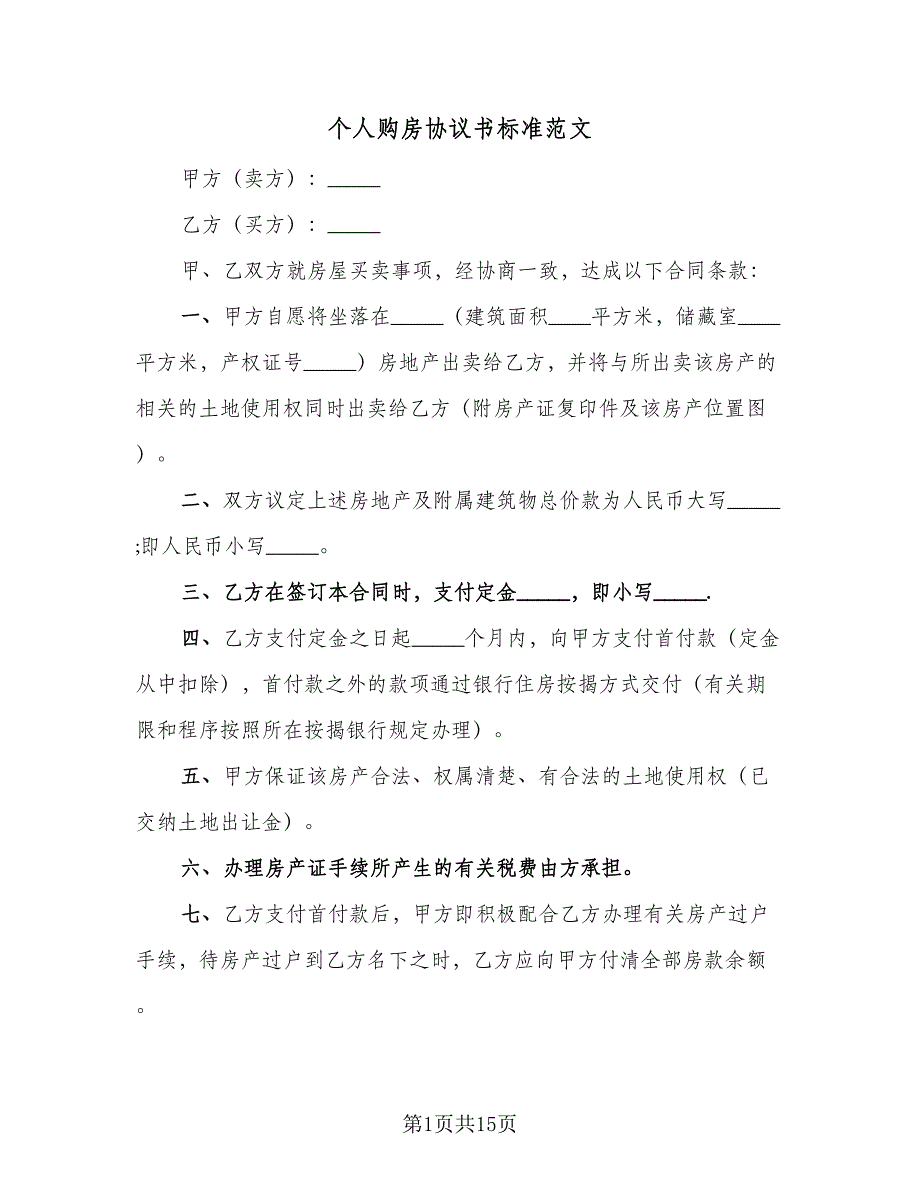 个人购房协议书标准范文
甲方（卖方）：_____
乙方（买方）：_____
甲、乙双方就房屋买卖事项，经协商一致，达成以下合同条款：
一、甲方自愿将坐落在_____（建筑面积____平方米，储藏室____
平方米，产权证号_____）房地产出卖给乙方，并将与所出卖该房产的
相关的土地使用权同时出卖给乙方（附房产证复印件及该房产位置图
）。
二、双方议定上述房地产及附属建筑物总价款为人民币大写_____
;即人民币小写_____。
三、乙方在签订本合同时，支付定金_____，即小写_____.
四、乙方支付定金之日起_____个月内，向甲方支付首付款（定金
从中扣除），首付款之外的款项通过银行住房按揭方式交付（有关期
限和程序按照所在按揭银行规定办理）。
五、甲方保证该房产合法、权属清楚、有合法的土地使用权（已
交纳土地出让金）。
六、办理房产证手续所产生的有关税费由方承担。
七、乙方支付首付款后，甲方即积极配合乙方办理有关房产过户
手续，待房产过户到乙方名下之时，乙方应向甲方付清全部房款余额
。
第1页共15页